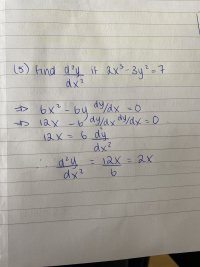 (5) Find d²y/dx² if 2x³ - 3y² = 7
⇒ 6x² - 6y dy/dx = 0
⇒ 12x - 6 dy/dx dy/dx = 0
12x = 6 dy/dx²
∴ d²y/dx² = 12x/6 = 2x